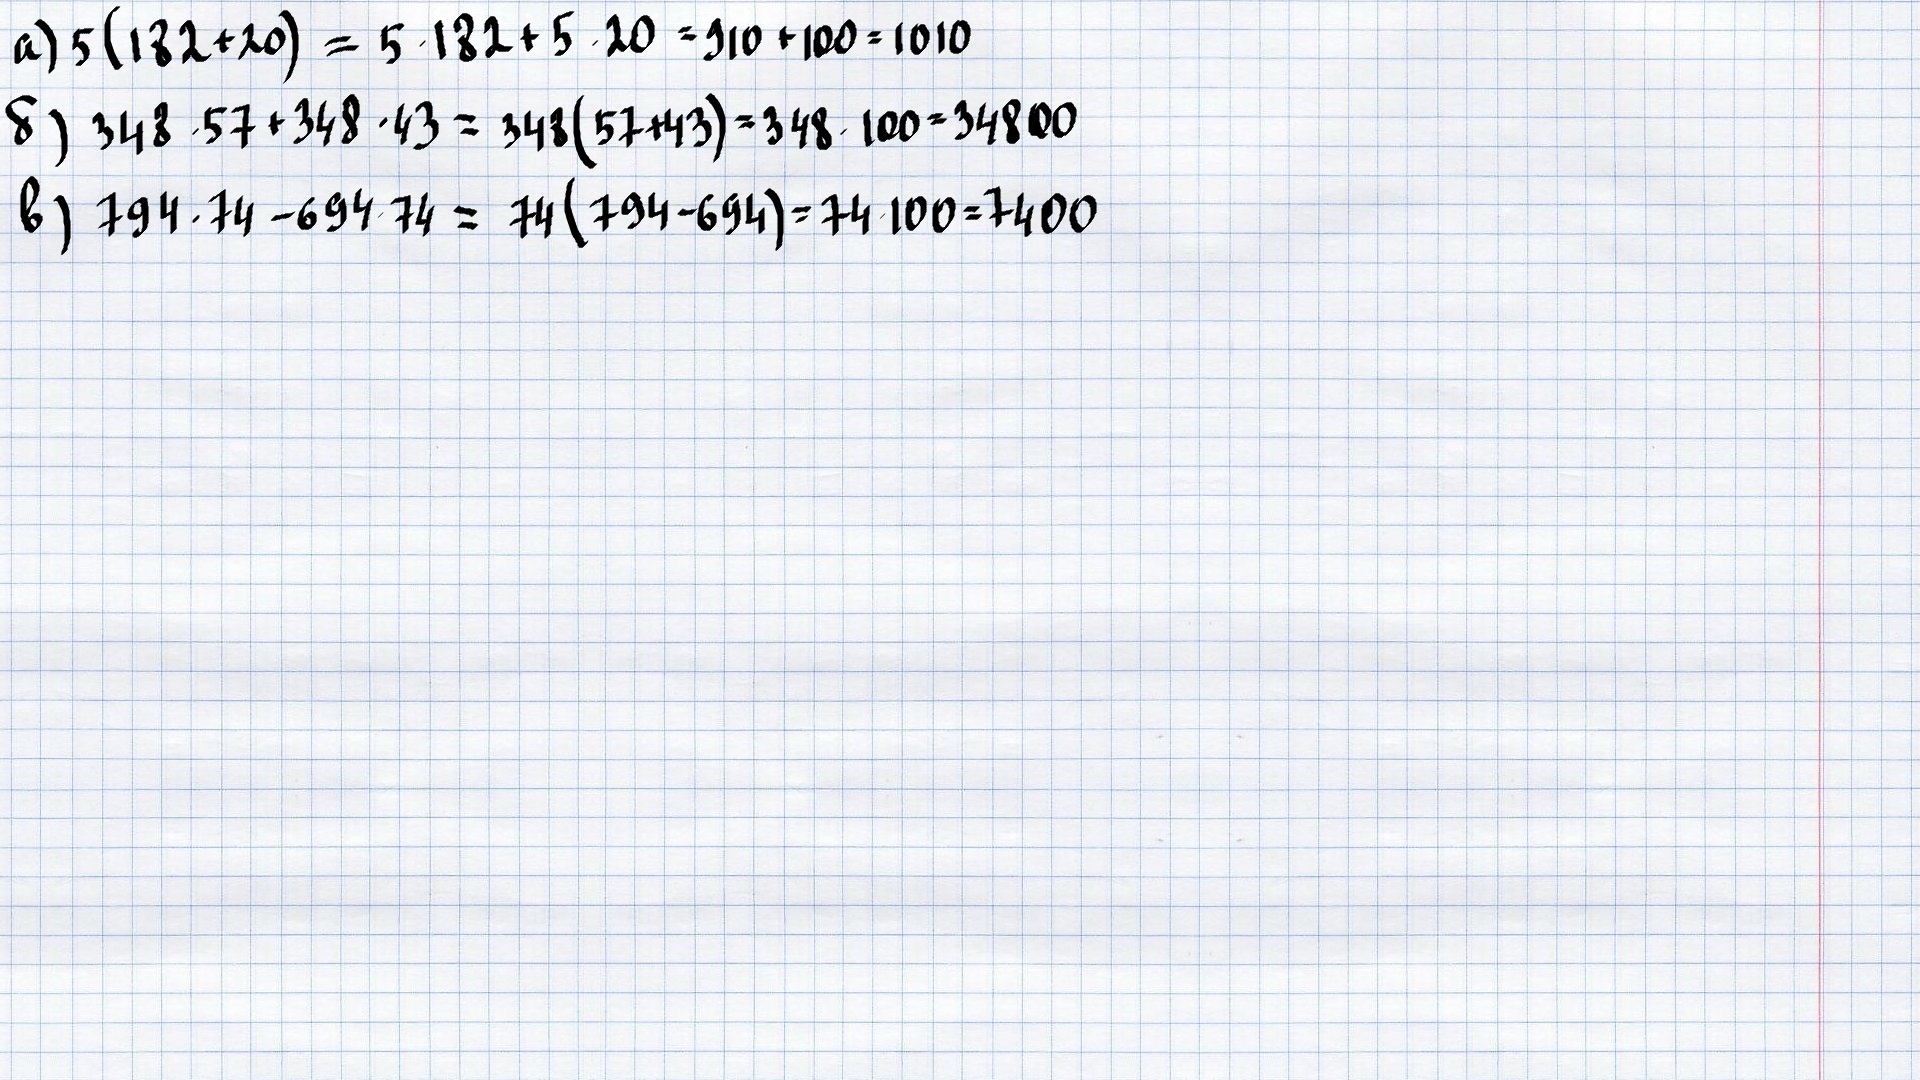 а) 5(182+20) = 5·182+5·20 = 910+100 = 1010
б) 348·57+348·43 = 348(57+43) = 348·100 = 34800
в) 794·74-694·74 = 74(794-694) = 74·100 = 7400